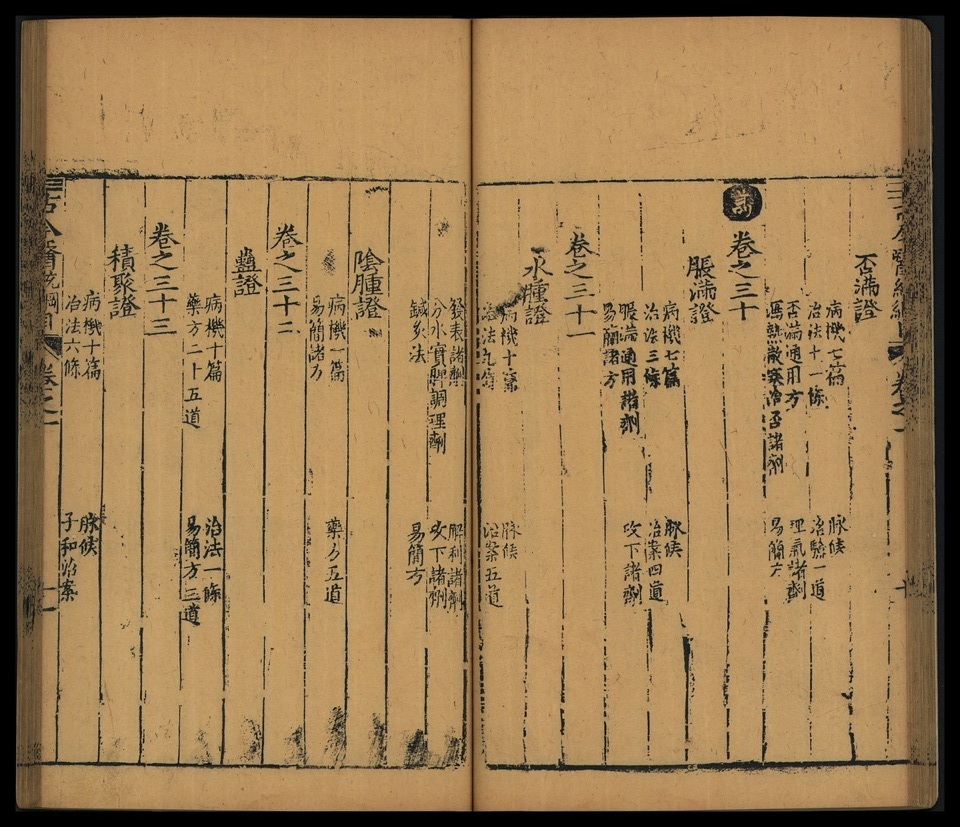 否滿證
病機七篇
脉候
治法十一條
治驗一道
否滿通用方
理氣諸劑
瀉熱散寒治否諸劑
易簡方
卷之三十
脹滿證
病機七篇
脉候
治法三條
治案四道
脹滿通用諸劑
攻下諸劑
易簡諸方
卷之三十一
水腫證
病機十篇
脉候
治法九條
治案五道
發表諸劑
解利諸劑
分水實脾調理劑
攻下諸劑
鍼灸法
易簡方
陰腫證
病機一篇
藥方五道
易簡諸方
卷之三十二
蠱證
病機十篇
治法一條
藥方二十五道
易簡方三道
卷之三十三
積聚證
病機十篇
脉候
治法六條
子和治案
卷之一
十一